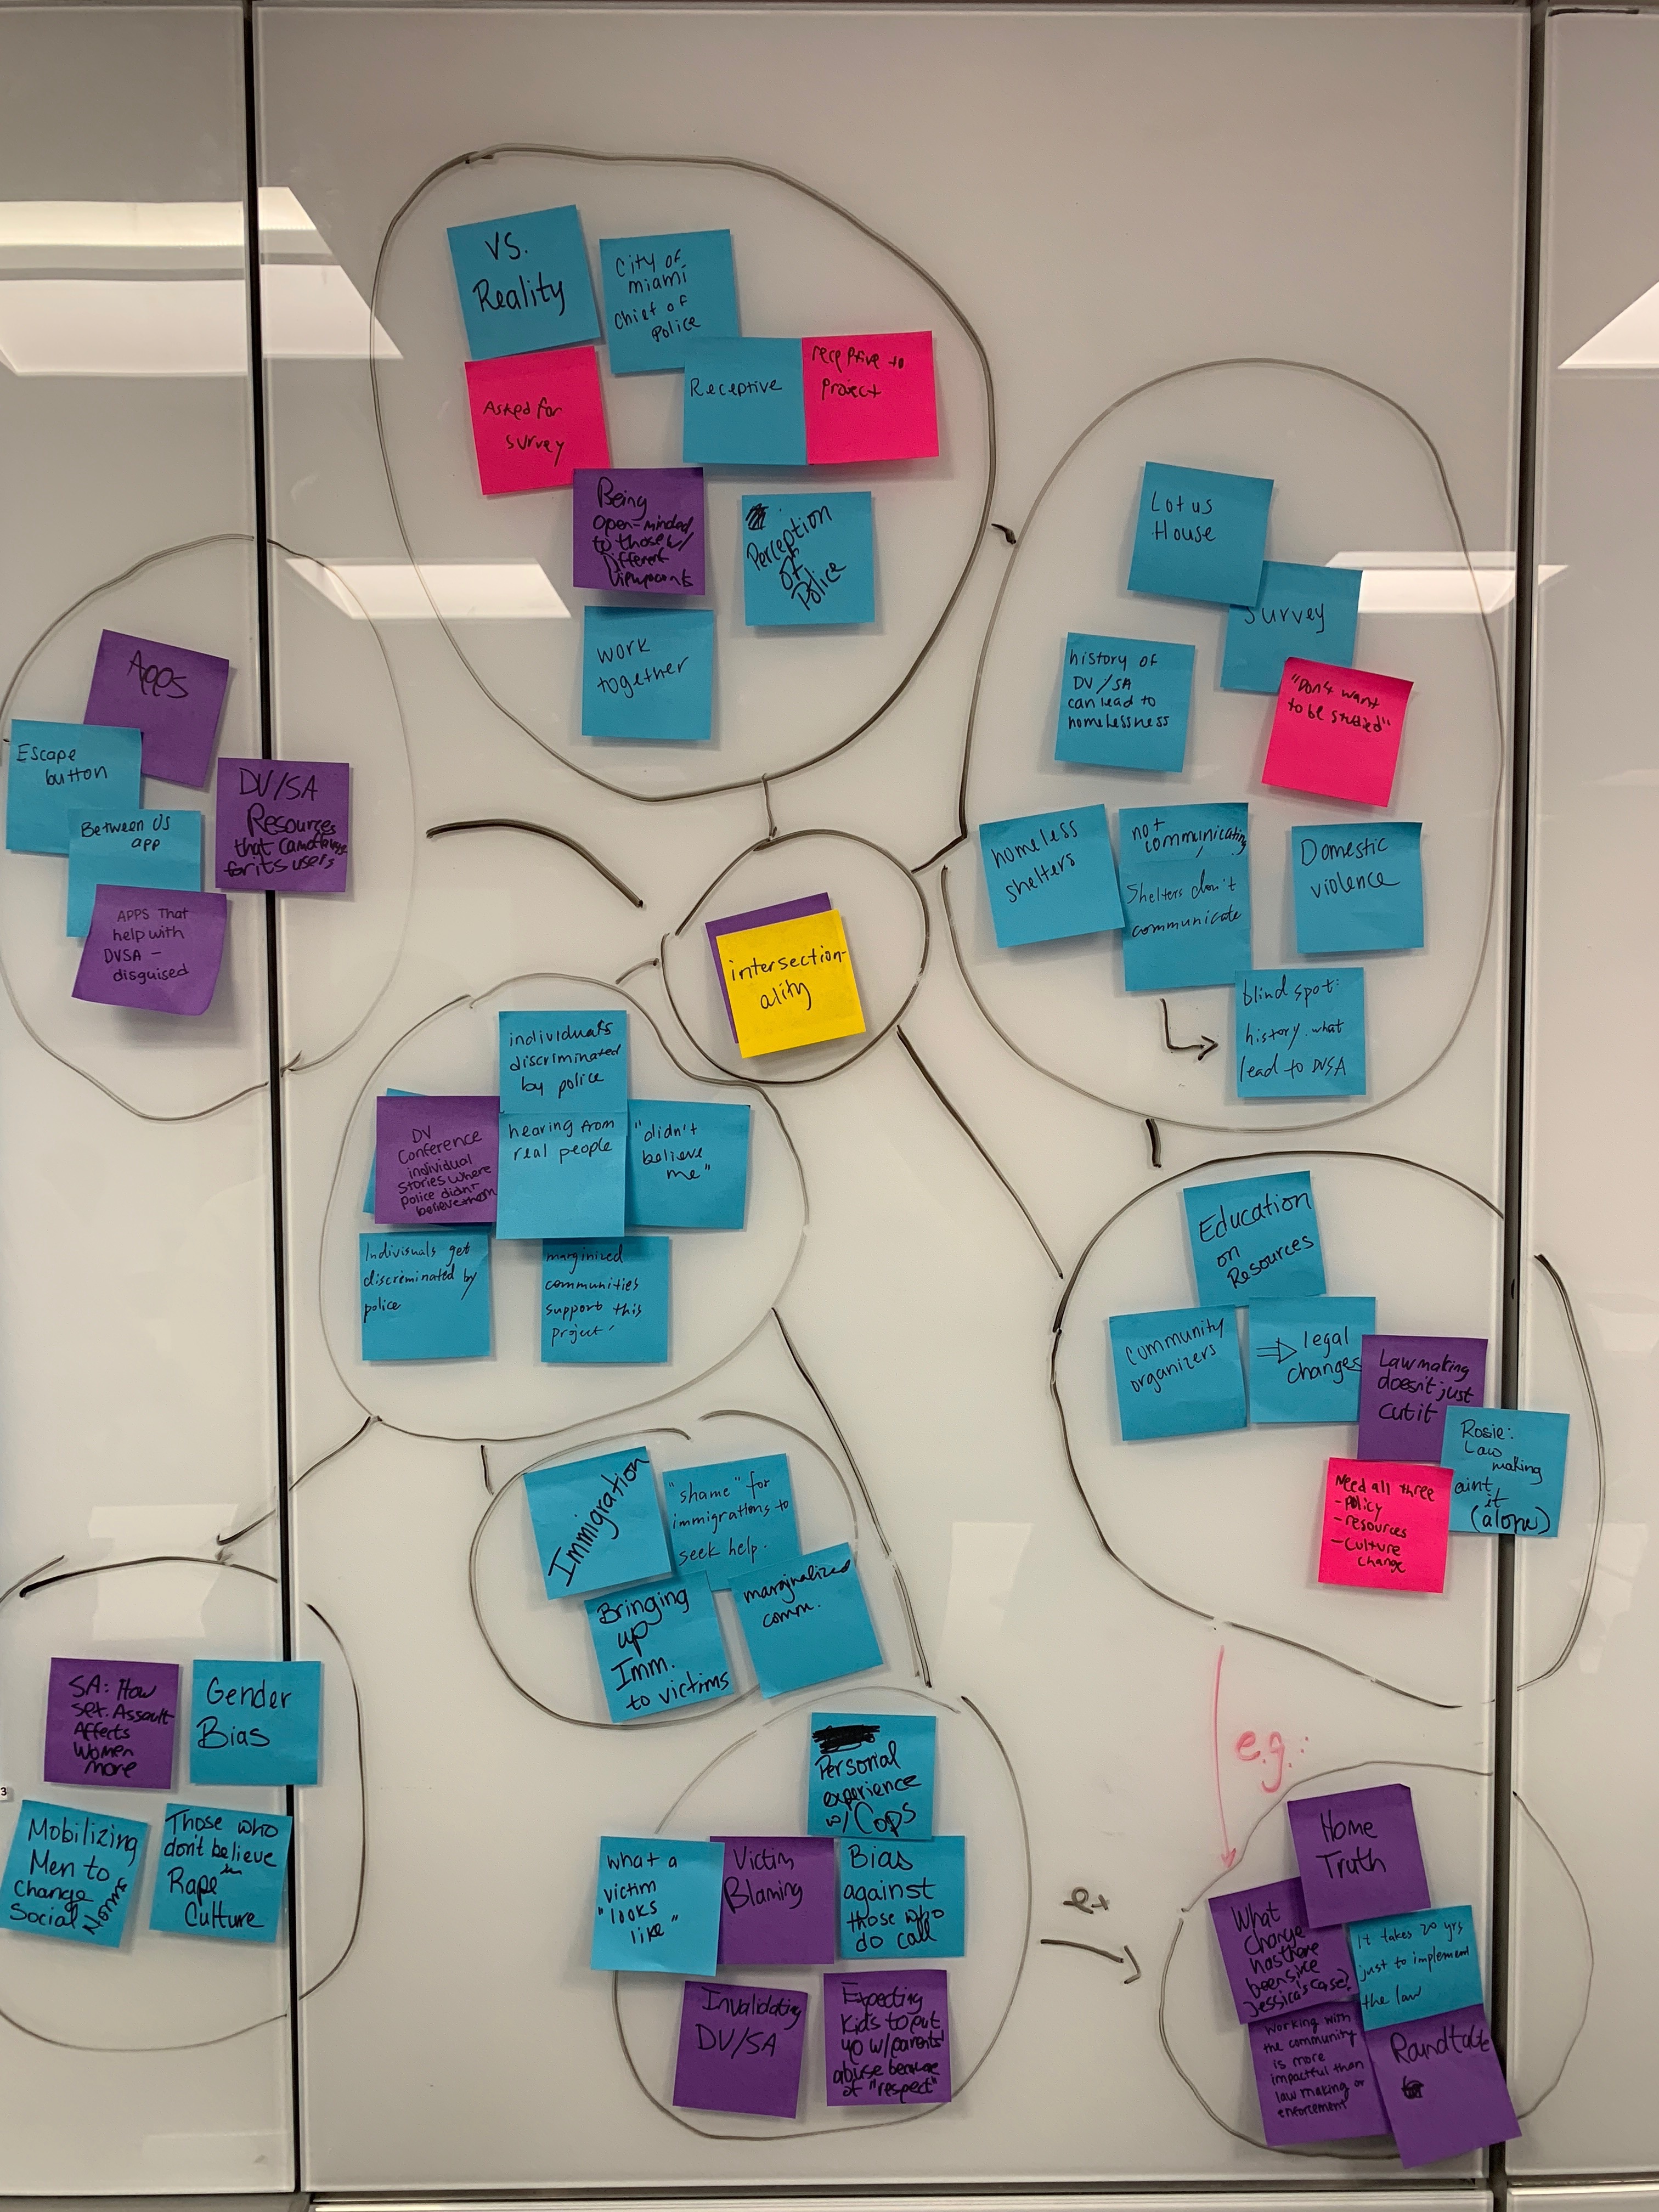 VS.
Reality
City of
miami
Chief of
Police
Asked for
survey
Receptive
receptive to
project
Being
open-minded
to those w/
Different
Viewpoints
Perception
of
Police
work
together
Lotus
House
Survey
history of
DV/SA
can lead to
homelessness
"Don't want
to be studied"
homeless
shelters
not
communicating
Shelters don't
communicate
Domestic
violence
blind spot:
history. what
lead to DVSA
Apps
Escape
button
Between Us
app
DV/SA
Resources
that camoflauge
for its users
APPS That
help with
DVSA –
disguised
intersection-
ality
individuals
discriminated
by police
DV
Conference
individual
stories where
police didn't
believe them
hearing from
real people
"didn't
believe
me"
Indivisuals get
discriminated by
police
marginized
communities
support this
project
Education
on
Resources
Community
organizers
⇒ legal
changes
Law making
doesn't just
cut it
Rosie:
Law
making
aint
it
(alone)
Need all three
- Policy
- resources
- Culture
change
Immigration
"shame" for
immigrations to
seek help.
Bringing
up
Imm.
to victims
marginalized
comm.
SA: How
Assault
Affects
Women
more
Gender
Bias
Mobilizing
Men to
Change
Social Norms
Those who
don't believe
in
Rape
Culture
Personal
experience
w/ Cops
what a
victim
"looks
like"
Victim
Blaming
Bias
against
those who
do call
Invalidating
DV/SA
Expecting
Kids to put
up w/ parents'
abuse because
of "respect"
e.g.:
Home
Truth
What
change
has there
been since
Jessica's case?
It takes 20 yrs
just to implement
the law
Working with
the community
is more
impactful than
law making or
enforcement
Roundtable
3